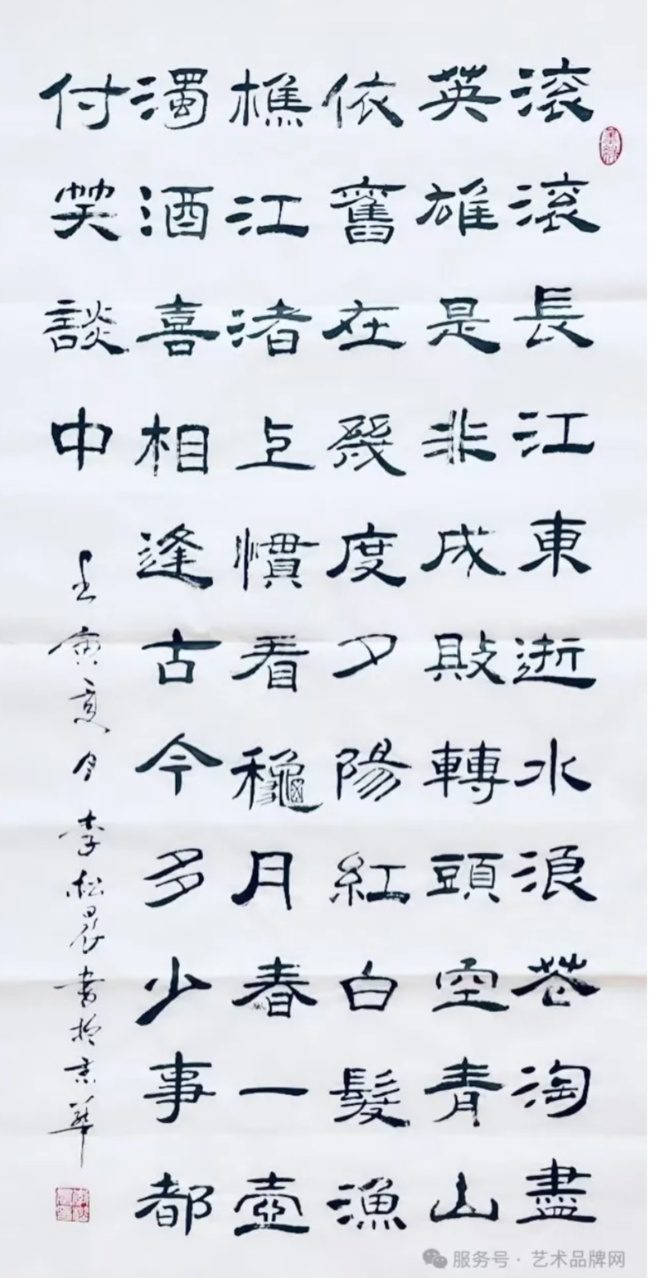 滚滚長江東逝水浪花淘盡
英雄是非成敗轉頭空青山
依舊在幾度夕陽紅白髮漁
樵江渚上慣看龝月春一壺
濁酒喜相逢古今多少事都
付笑談中
壬寅夏月李松晨書於京華
服务号·艺术品牌网